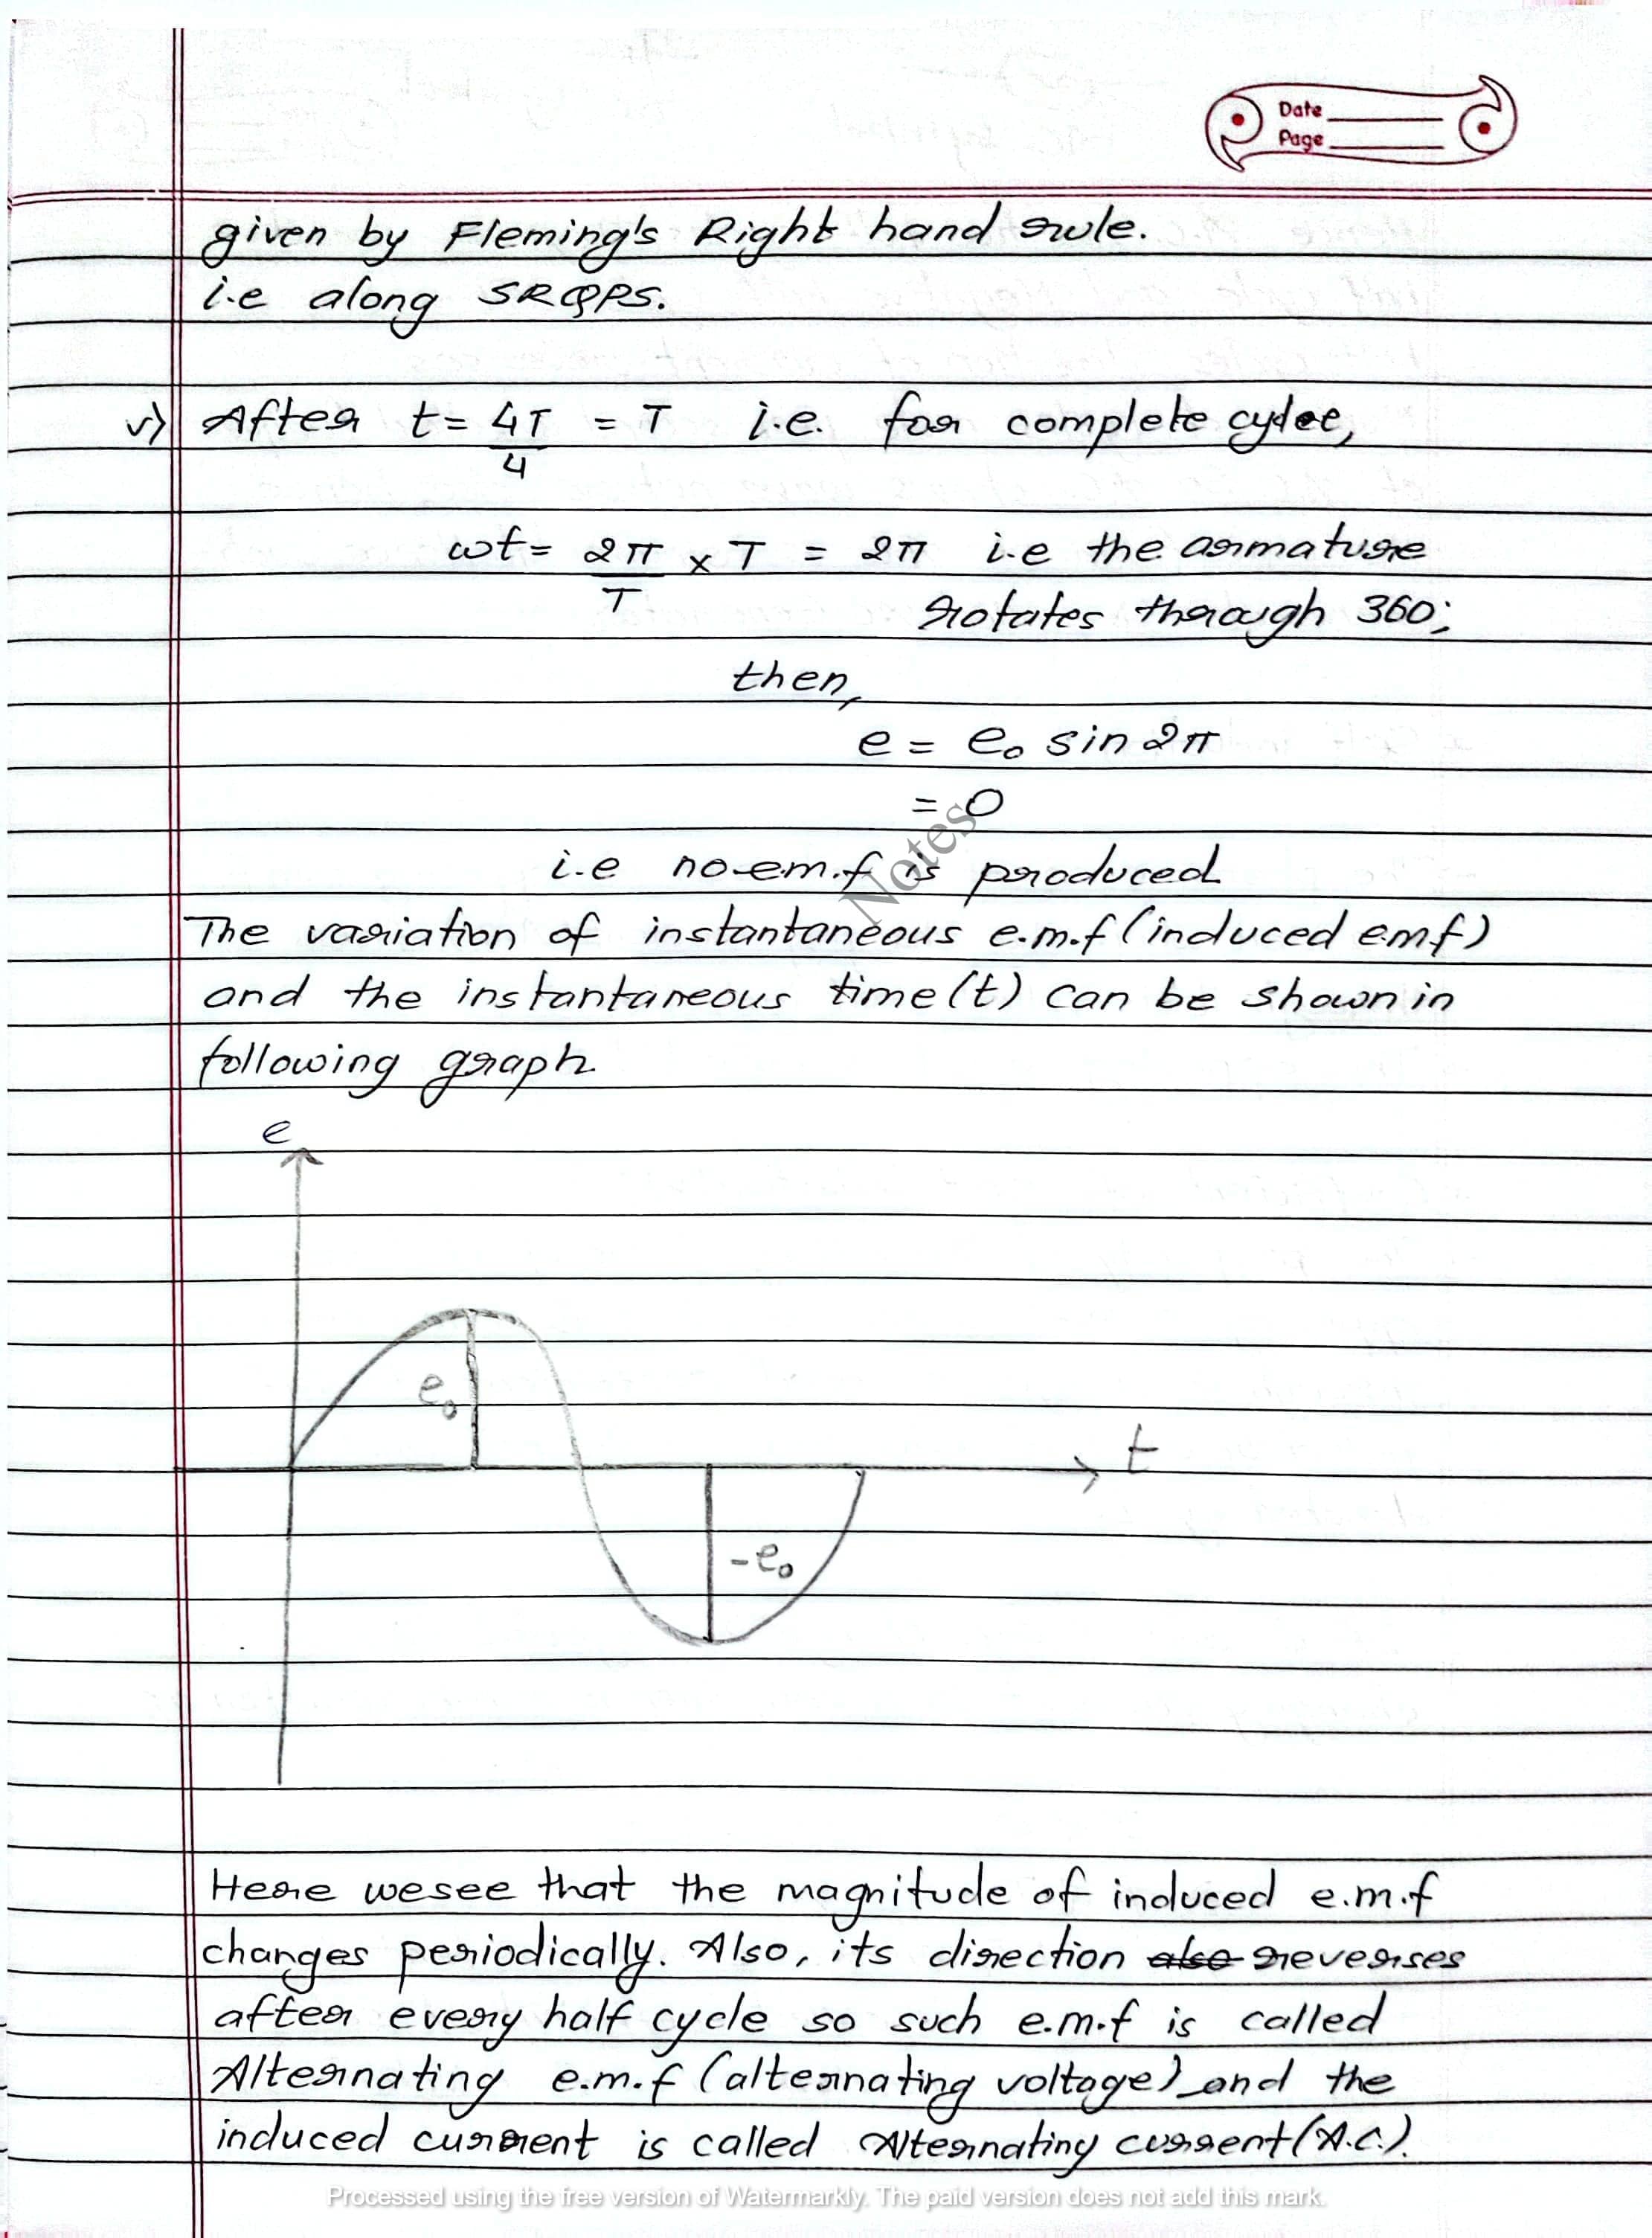 Date
Page
given by Fleming's Right hand rule.
i.e along SRQPS.
v) After t = 4T/4 = T i.e. for complete cylce,
ωt = 2π/T × T = 2π i.e the armature
rotates through 360;
then,
e = e₀ sin 2π
= 0
i.e no e.m.f is produced
Notes
The variation of instantaneous e.m.f (induced emf)
and the instantaneous time (t) can be shown in
following graph
e
e₀
t
-e₀
Here we see that the magnitude of induced e.m.f
changes periodically. Also, its direction also reverises
after every half cycle so such e.m.f is called
Alternating e.m.f (alternating voltage) and the
induced current is called Alternating current (A.C.).
Processed using the free version of Watermarkly. The paid version does not add this mark.